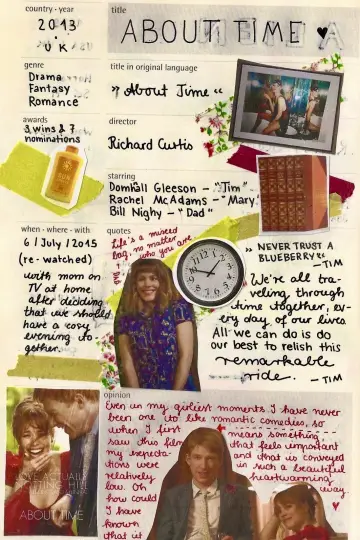 country · year
2013
UK
title
ABOUT TIME ♥
genre
Drama
Fantasy
Romance
title in original language
» About Time «
awards
3 wins & 7
nominations
director
Richard Curtis
starring
Domhall Gleeson – "Tim"
Rachel McAdams – "Mary"
Bill Nighy – "Dad"
when · where · with
6 / July / 2015
(re-watched)
with mom on
TV at home
after deciding
that we should
have a cosy
evening to-
gether.
quotes
Life's a mixed
bag, no matter
who you are
» NEVER TRUST A
BLUEBERRY «
– TIM
We're all tra-
veling through
time together, ev-
ery day of our lives.
All we can do is do
our best to relish this
remarkable
ride. – TIM
ABOUT TIME
opinion
Even in my girliest moments I have never
been one to like romantic comedies, so
when I first
saw this film
my expecta-
tions were
relatively
low. Oh
how could
I have
known
that it
means something,
that feels important
and that is conveyed
in such a beautiful
heartwarming
way.